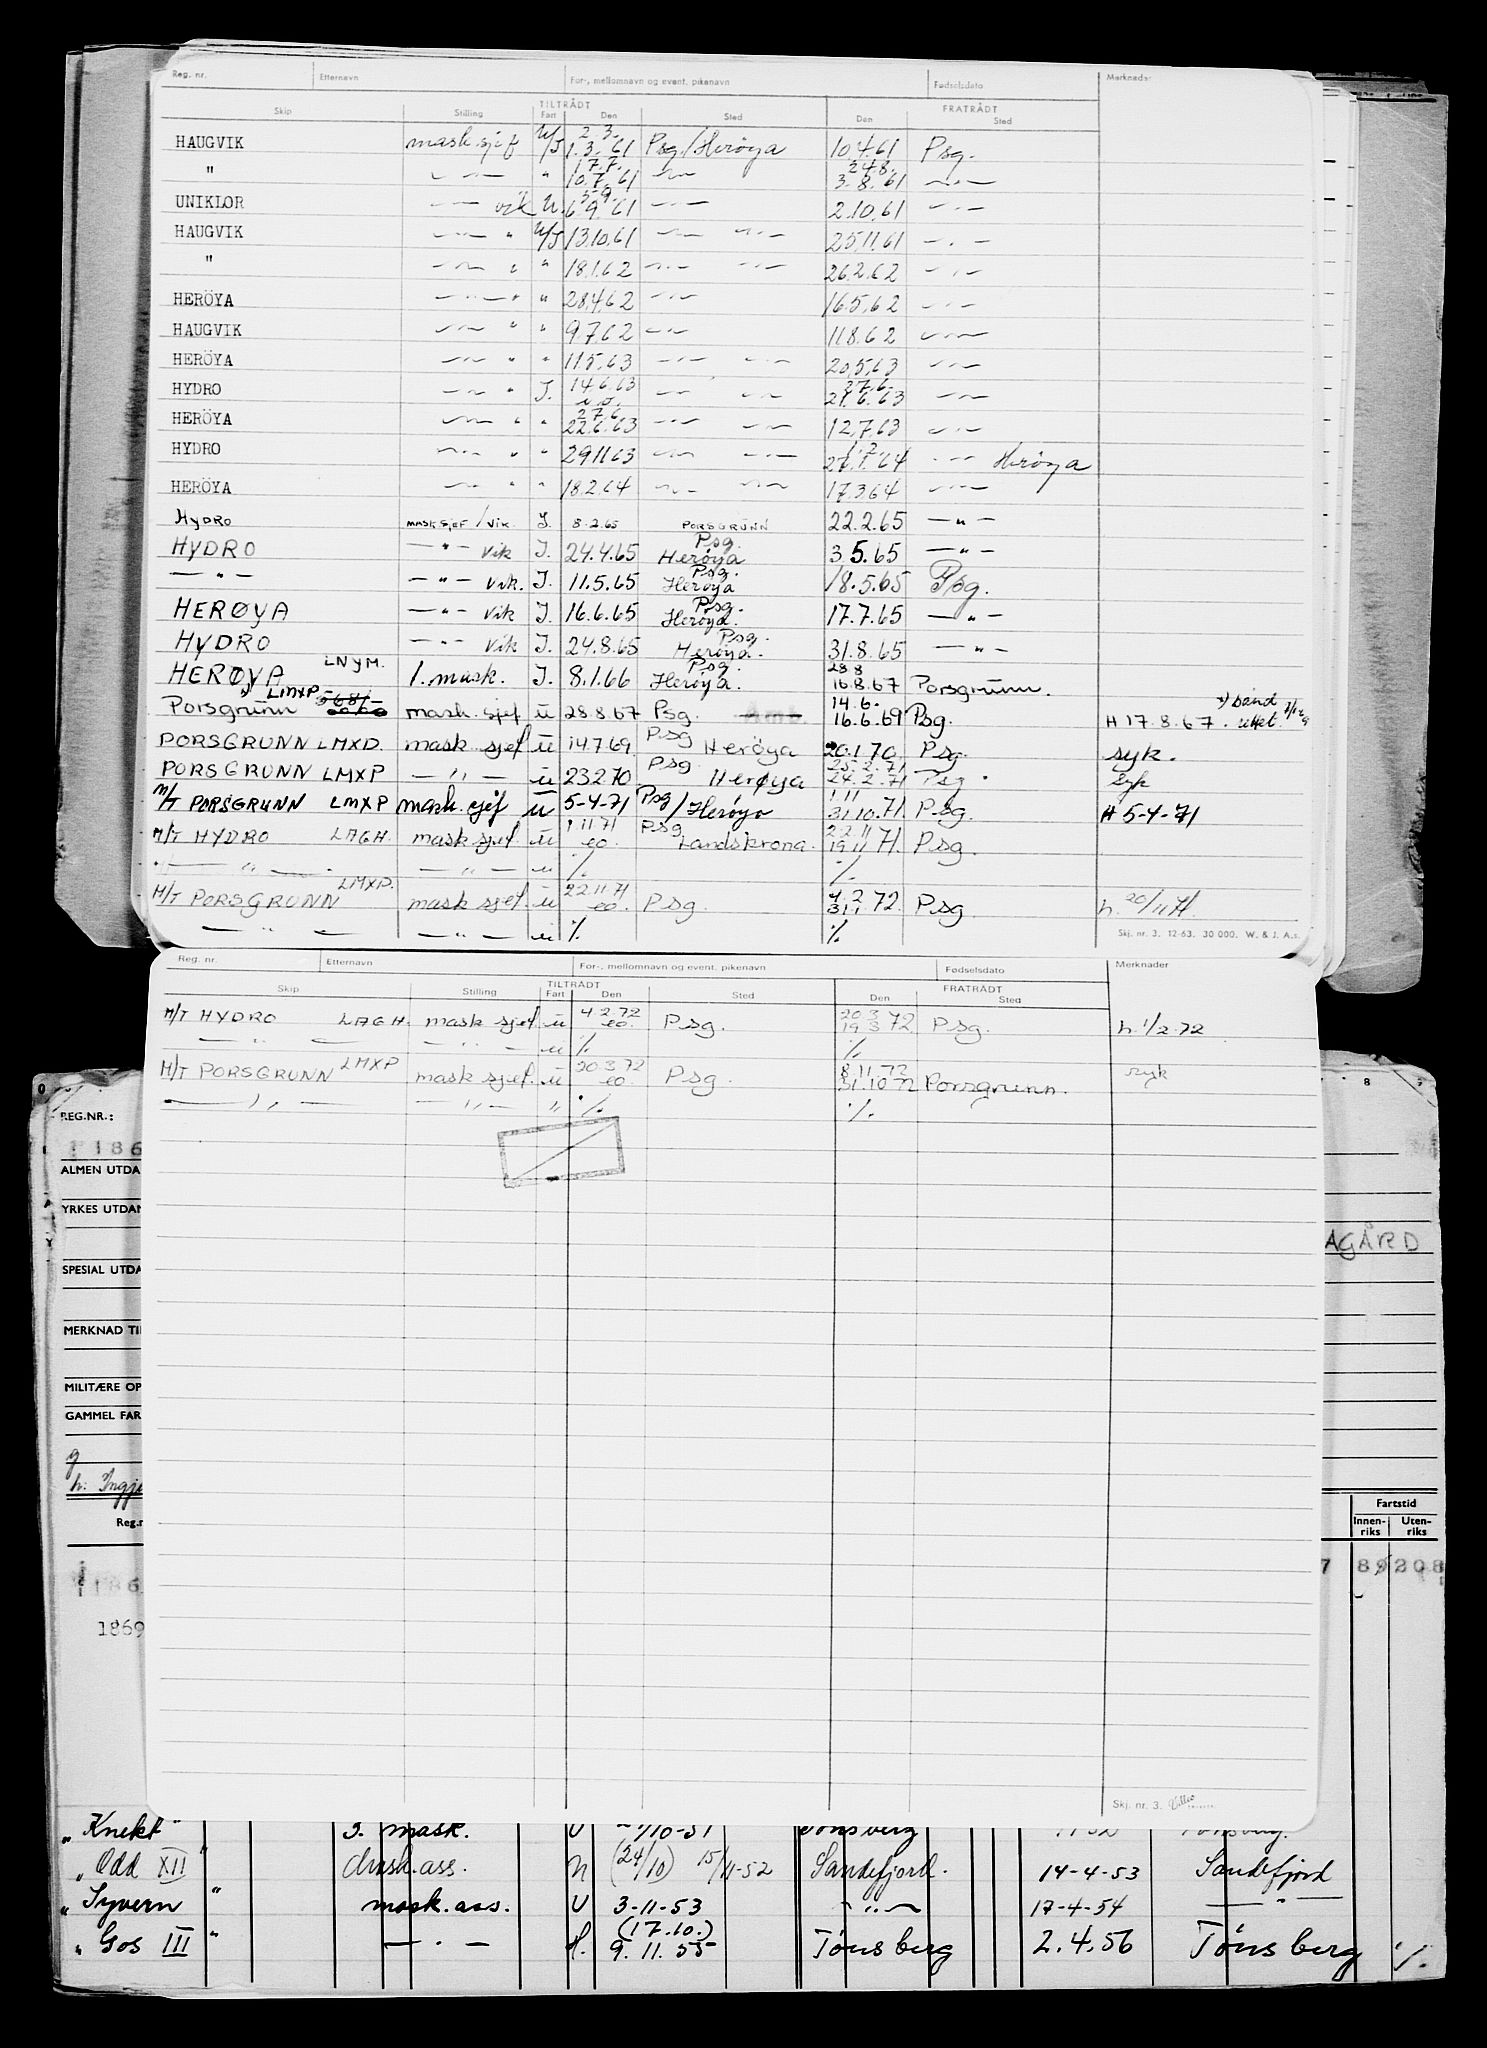 Reg. nr. Etternavn For-, mellomnavn og event. pikenavn Fødselsdato Merknader
TILTRÅDT FRATRÅDT
Skip Stilling Fart Den Sted Den Sted
HAUGVIK mask. sjef U/J 2.3. 1.3.61 Psg./Herøya 10.4.61 Psg.
" — " — " 17.7. 10.7.61 — " — 24.8. 3.8.61 — " —
UNIKLOR — " — vik U. 5.9. 6.9.61 — " — 2.10.61 — " —
HAUGVIK — " — " U/J 13.10.61 — " — — " — 25.11.61 — " —
" — " — " " 18.1.62 — " — — " — 26.2.62 — " —
HERÖYA — " — " " 28.4.62 — " — 16.5.62 — " —
HAUGVIK — " — " " 9.7.62 — " — 11.8.62 — " —
HERÖYA — " — " " 11.5.63 — " — — " — 20.5.63 — " —
HYDRO — " — " J. 14.6.63 — " — — " — 27.6. 21.6.63 — " —
HERÖYA — " — " " 27.6. 22.6.63 — " — — " — 12.7.63 — " —
HYDRO — " — " " 29.11.63 — " — — " — 27.1.64 — " — Herøya
HERÖYA — " — " " 18.2.64 — " — — " — 17.3.64 — " —
HYDRO MASK SJEF / VIK. J. 8.2.65 PORSGRUNN 22.2.65 — " —
HYDRO — " — vik J. 24.4.65 Psg. Herøya 3.5.65 — " —
— " — — " — vik. J. 11.5.65 Psg. Herøya 18.5.65 Psg.
HERØYA — " — vik J. 16.6.65 Psg. Herøya. 17.7.65 — " —
HYDRO — " — vik J. 24.8.65 Psg. Herøya. 31.8.65 — " —
HERØYA LNYM. 1. mask. J. 8.1.66 Psg. Herøya. 28.8 16.8.67 Porsgrunn.
Porsgrunn LMXP. mask. sjef u 28.8.67 Psg. Amb. 14.6. 16.6.69 Psg. H 17.8.67.
PORSGRUNN LMXD. mask. sjef u 14.7.69. Psg Herøya 20.1.70 Psg. syk.
PORSGRUNN LMXP — " — u 23270 Psg. Herøya 25.2.71 24.2.71 Psg. Syk
M/T PORSGRUNN LMXP mask. sjef u 5-4-71 Psg/Herøya 1.11 31.10.71. Psg. H 5-4-71
M/T HYDRO LAGH. mask sjef. u 1.11.71 eo. Psg Landskrona. 22.11 19.11 71. Psg.
— " — — " — u ./. ./.
M/T PORSGRUNN LMXP. mask sjef. u 22.11.71 eo. Psg. 4.2 31.1 72. Psg. h. 20/11 71.
— " — — " — u ./. ./.
Skj. nr. 3. 12-63. 30 000. W. & J. A.s.
Reg. nr. Etternavn For-, mellomnavn og event. pikenavn Fødselsdato Merknader
TILTRÅDT FRATRÅDT
Skip Stilling Fart Den Sted Den Sted
M/T HYDRO LAGH. mask sjef. u 4.2.72 eo. Psg. 20.3 19.3 72 Psg. h. 1/2-72
— " — — " — u ./. ./.
M/T PORSGRUNN LMXP mask sjef. u 20.3.72 eo. Psg. 8.11.72 31.10 72 Porsgrunn. syk
— " — — " — " ./. ./.
Skj. nr. 3.
REG.NR.: 8
186
ALMEN UTDA
YRKES UTDAN
AGÅRD
SPESIAL UTDA
MERKNAD TI
MILITÆRE OP
GAMMEL FAR
g
h: Ingj
Fartstid
Reg.n Innen-riks Uten-riks
186 7 89 208
1869
„ Knekt " 3. mask. U /10-51 Tønsberg Tønsberg.
„ Odd XII " mask. ass. N (24/10) 15/11-52 Sandefjord. 14-4-53 Sandefjord
„ Syvern " mask. ass. U 3-11-53 — " — 17-4-54 — " —
„ Gos III " — " — H. (17.10.) 9.11.55 Tønsberg 2.4.56 Tønsberg ./.